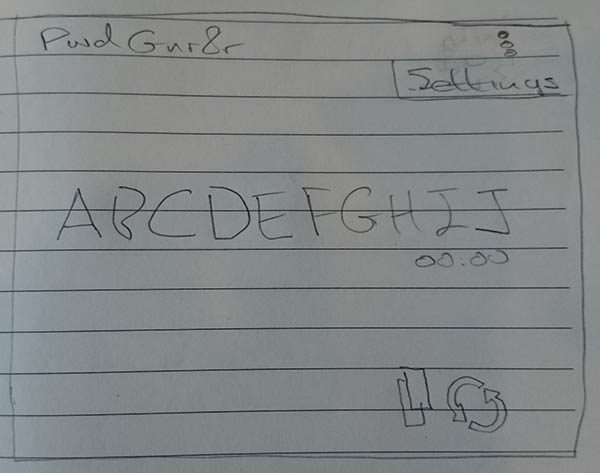 Pwd Gnr8r
Settings
ABCDEFGHIJ
00:00